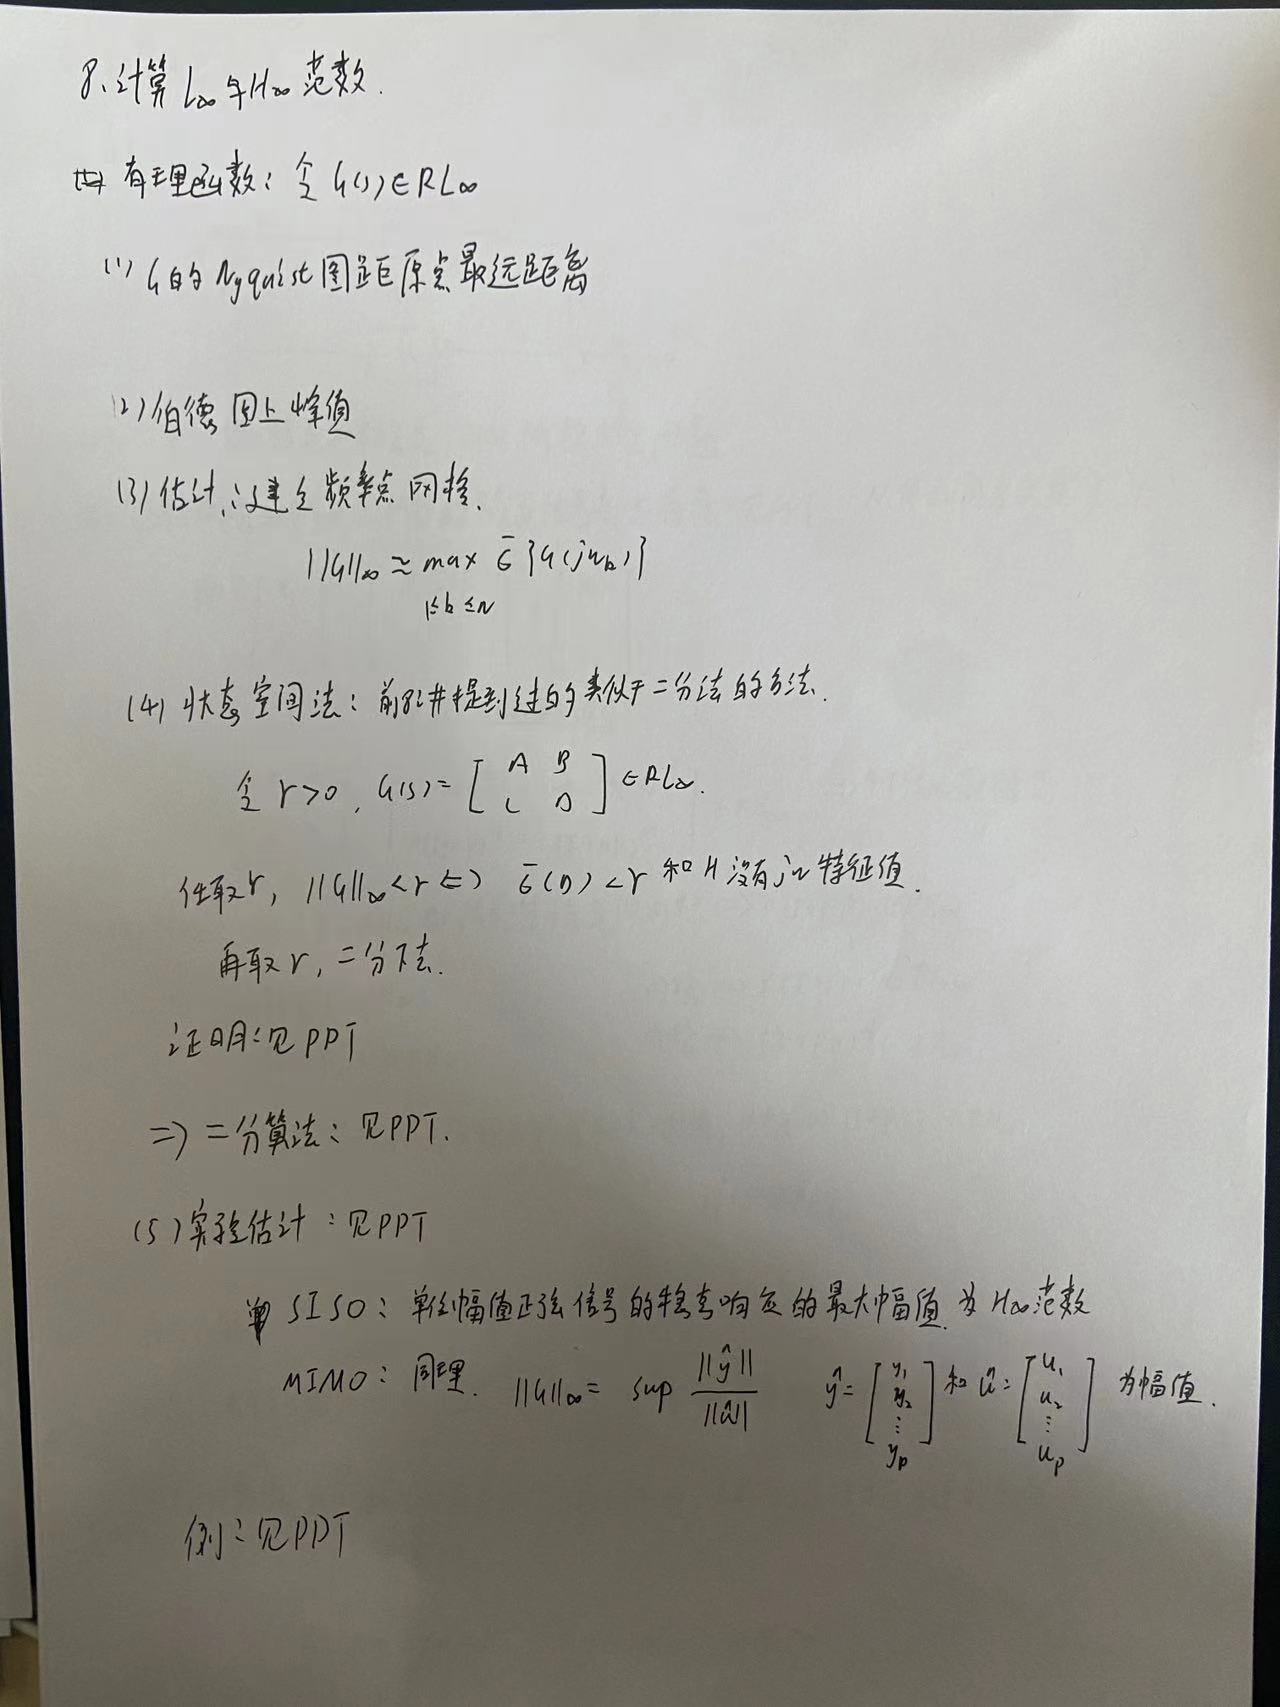 8、计算 L∞与H∞ 范数.
有理函数：令 G(s)∈RL∞
(1) G的 Nyquist 图距原点最远距离
(2) 伯德图上峰值
(3) 估计：建立频率点网格.
||G||∞ ≈ max σ̄ {G(jωk)}
1≤k≤N
(4) 状态空间法：前序提到过的类似于二分法的方法.
令 γ>0, G(s)= [ A B
C D ] ∈RL∞.
任取γ, ||G||∞<γ ⇔ σ̄(D)<γ 和 H 没有jω特征值.
再取γ, 二分下去.
证明：见PPT
⇒ 二分算法：见PPT.
(5) 实验估计：见PPT
SISO：单位幅值正弦信号的稳态响应的最大幅值为H∞范数
MIMO：同理. ||G||∞= sup ||ŷ|| / ||û|| ŷ= [ y₁ y₂ ⋮ yp ] 和 û= [ u₁ u₂ ⋮ up ] 为幅值.
例：见PPT